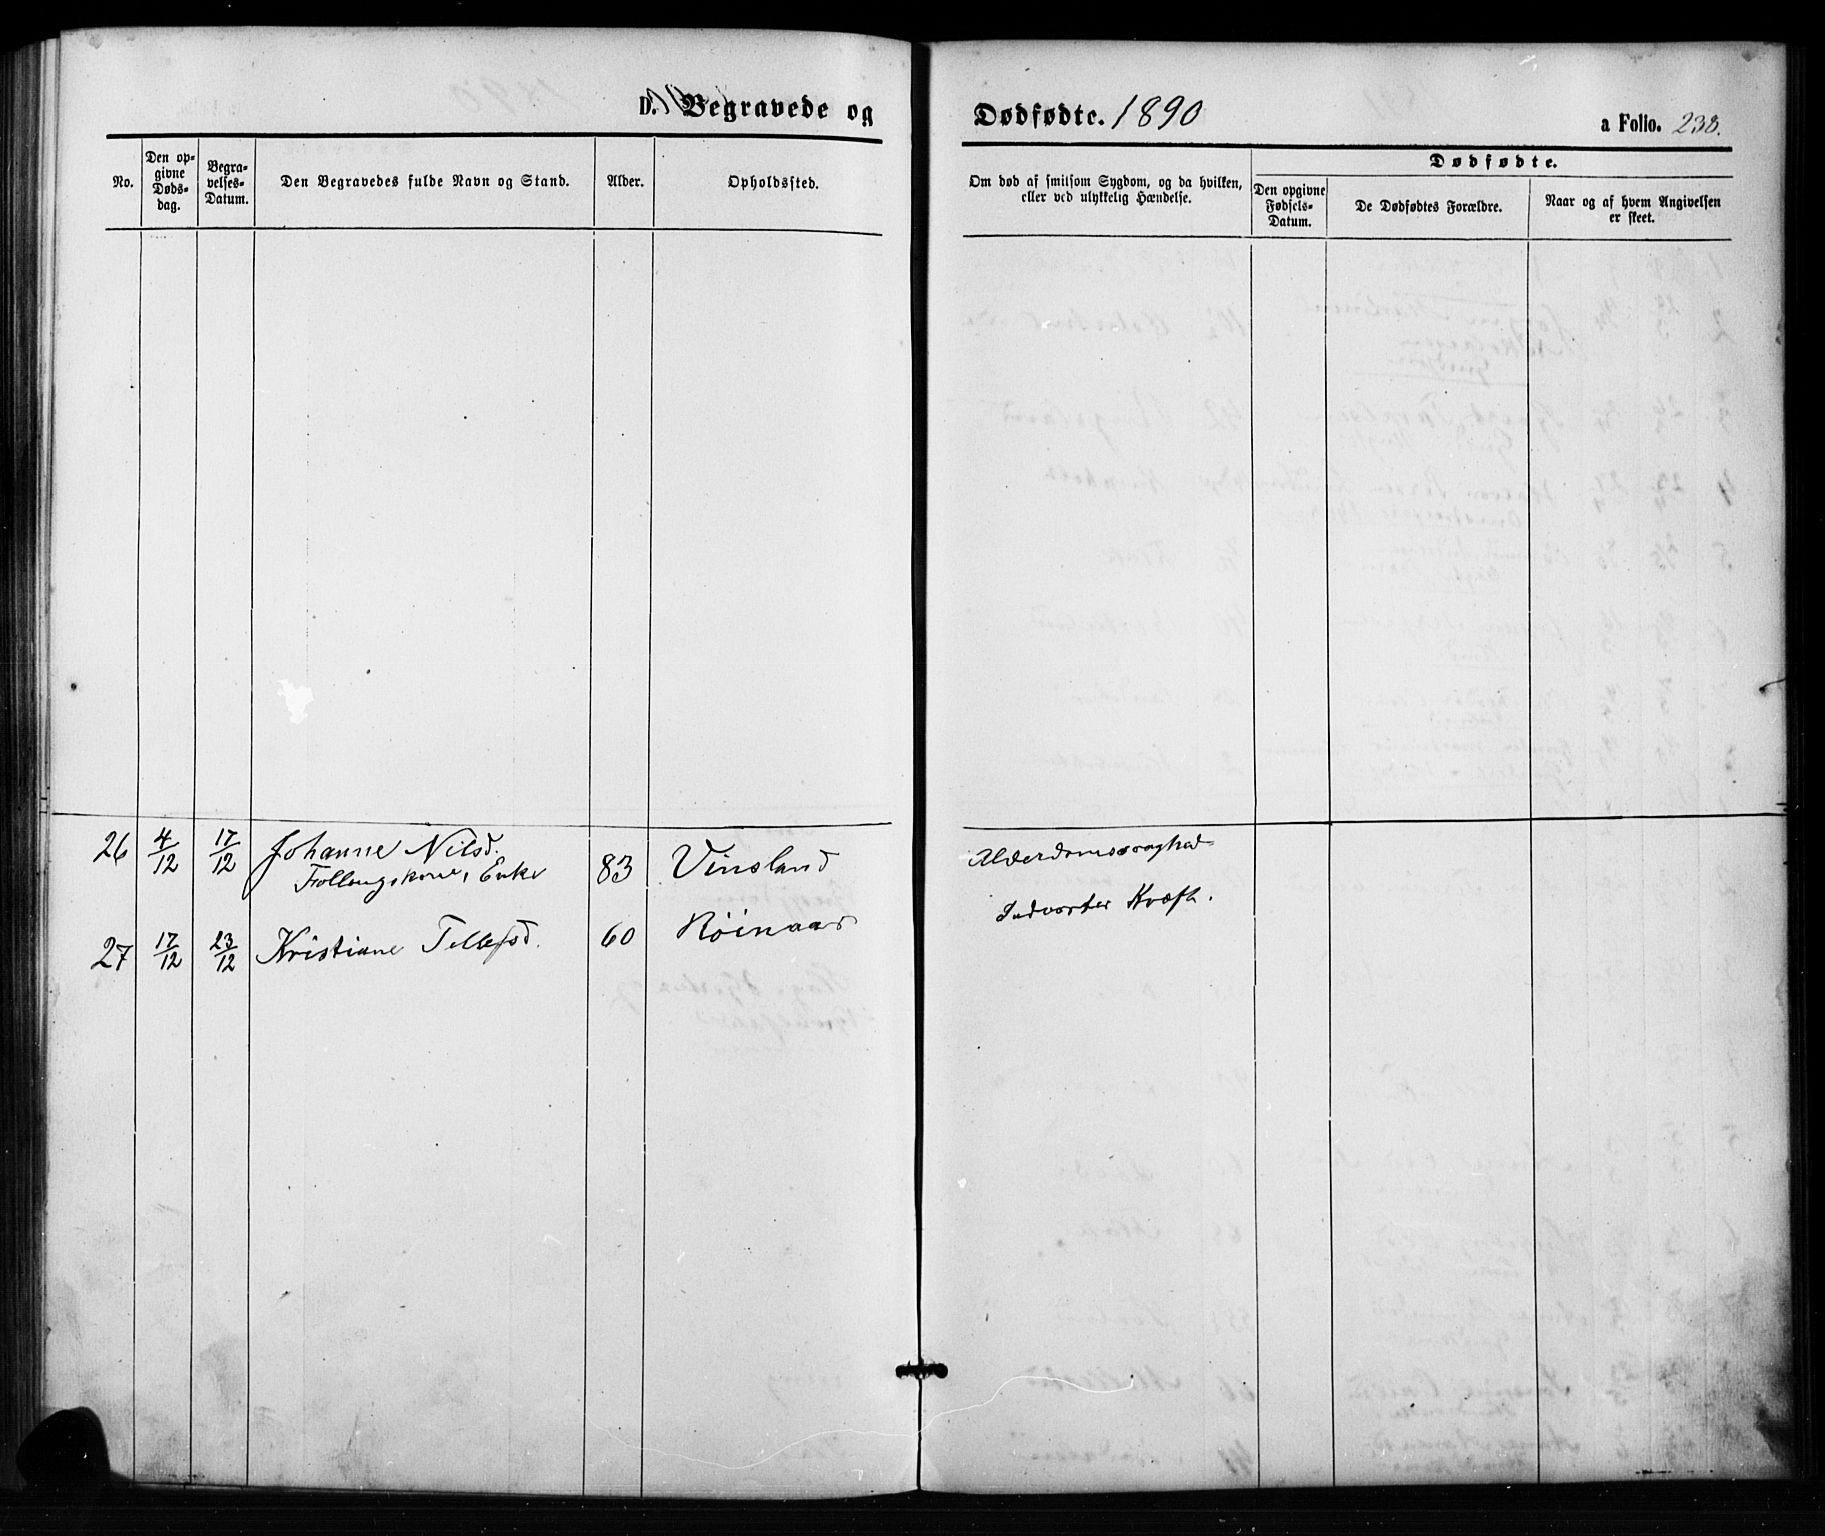 D. Begravede og Dødfødte. 1890
a Folio. 238.
No.
Den op-
givne
Døds-
dag.
Begra-
velses-
Datum.
Den Begravedes fulde Navn og Stand.
Alder.
Opholdssted.
Om død af smitsom Sygdom, og da hvilken,
eller ved ulykkelig Hændelse.
Dødfødte.
Den opgivne
Fødsels-
Datum.
De Dødfødtes Forældre.
Naar og af hvem Angivelsen
er skeet.
26 4/12 17/12 Johanne Nilsd. 83 Vinsland Alderdomssvaghed
Enke
27 17/12 23/12 Kristiane Tellefsd. 60 Røinaas Indvortes Kræft.